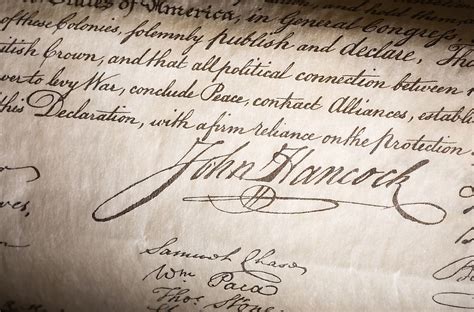 States of America, in General Congress,
of these Colonies, solemnly publish and declare, Tha
itish Crown, and that all political connection between
er to levy War, conclude Peace, contract Alliances, establi
this Declaration, with a firm reliance on the protection
John Hancock
Samuel Chase
Wm Paca
Thos Stone